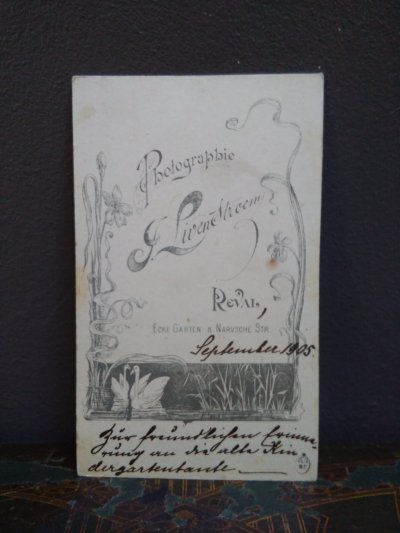 Photographie
J. Livenstroem
Reval,
Ecke Garten & Narvsche Str.
September 1905.
Zur freundlichen Erinne-
rung an die alte Kin
dergartentante